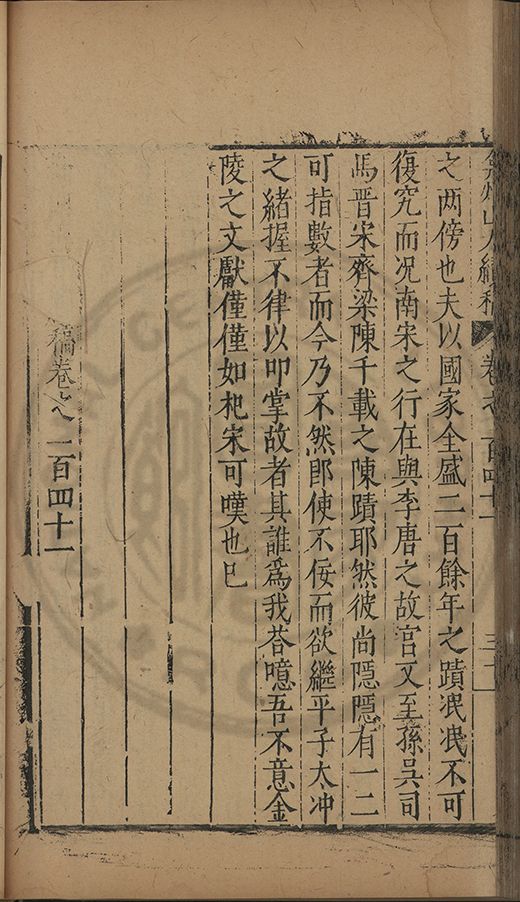 弇州山人續稿 卷之一百四十一 三十
之两傍也夫以國家全盛二百餘年之蹟泯泯不可
復究而况南宋之行在與李唐之故宫又至孫吳司
馬晋宋齊梁陳千載之陳蹟耶然彼尚隱隱有一二
可指數者而今乃不然卽使不佞而欲繼平子太冲
之緒握不律以叩掌故者其誰爲我荅噫吾不意金
陵之文獻僅僅如杞宋可嘆也已
稿卷之一百四十一